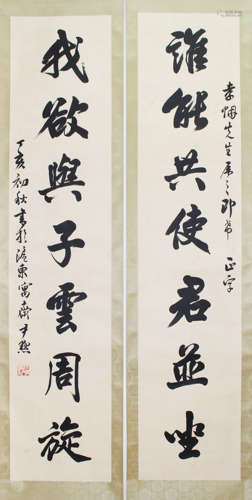 先生属之即希 正字
誰能共使君並坐
我欲與子雲周旋
丁亥初秋書於滬東寓齋尹默